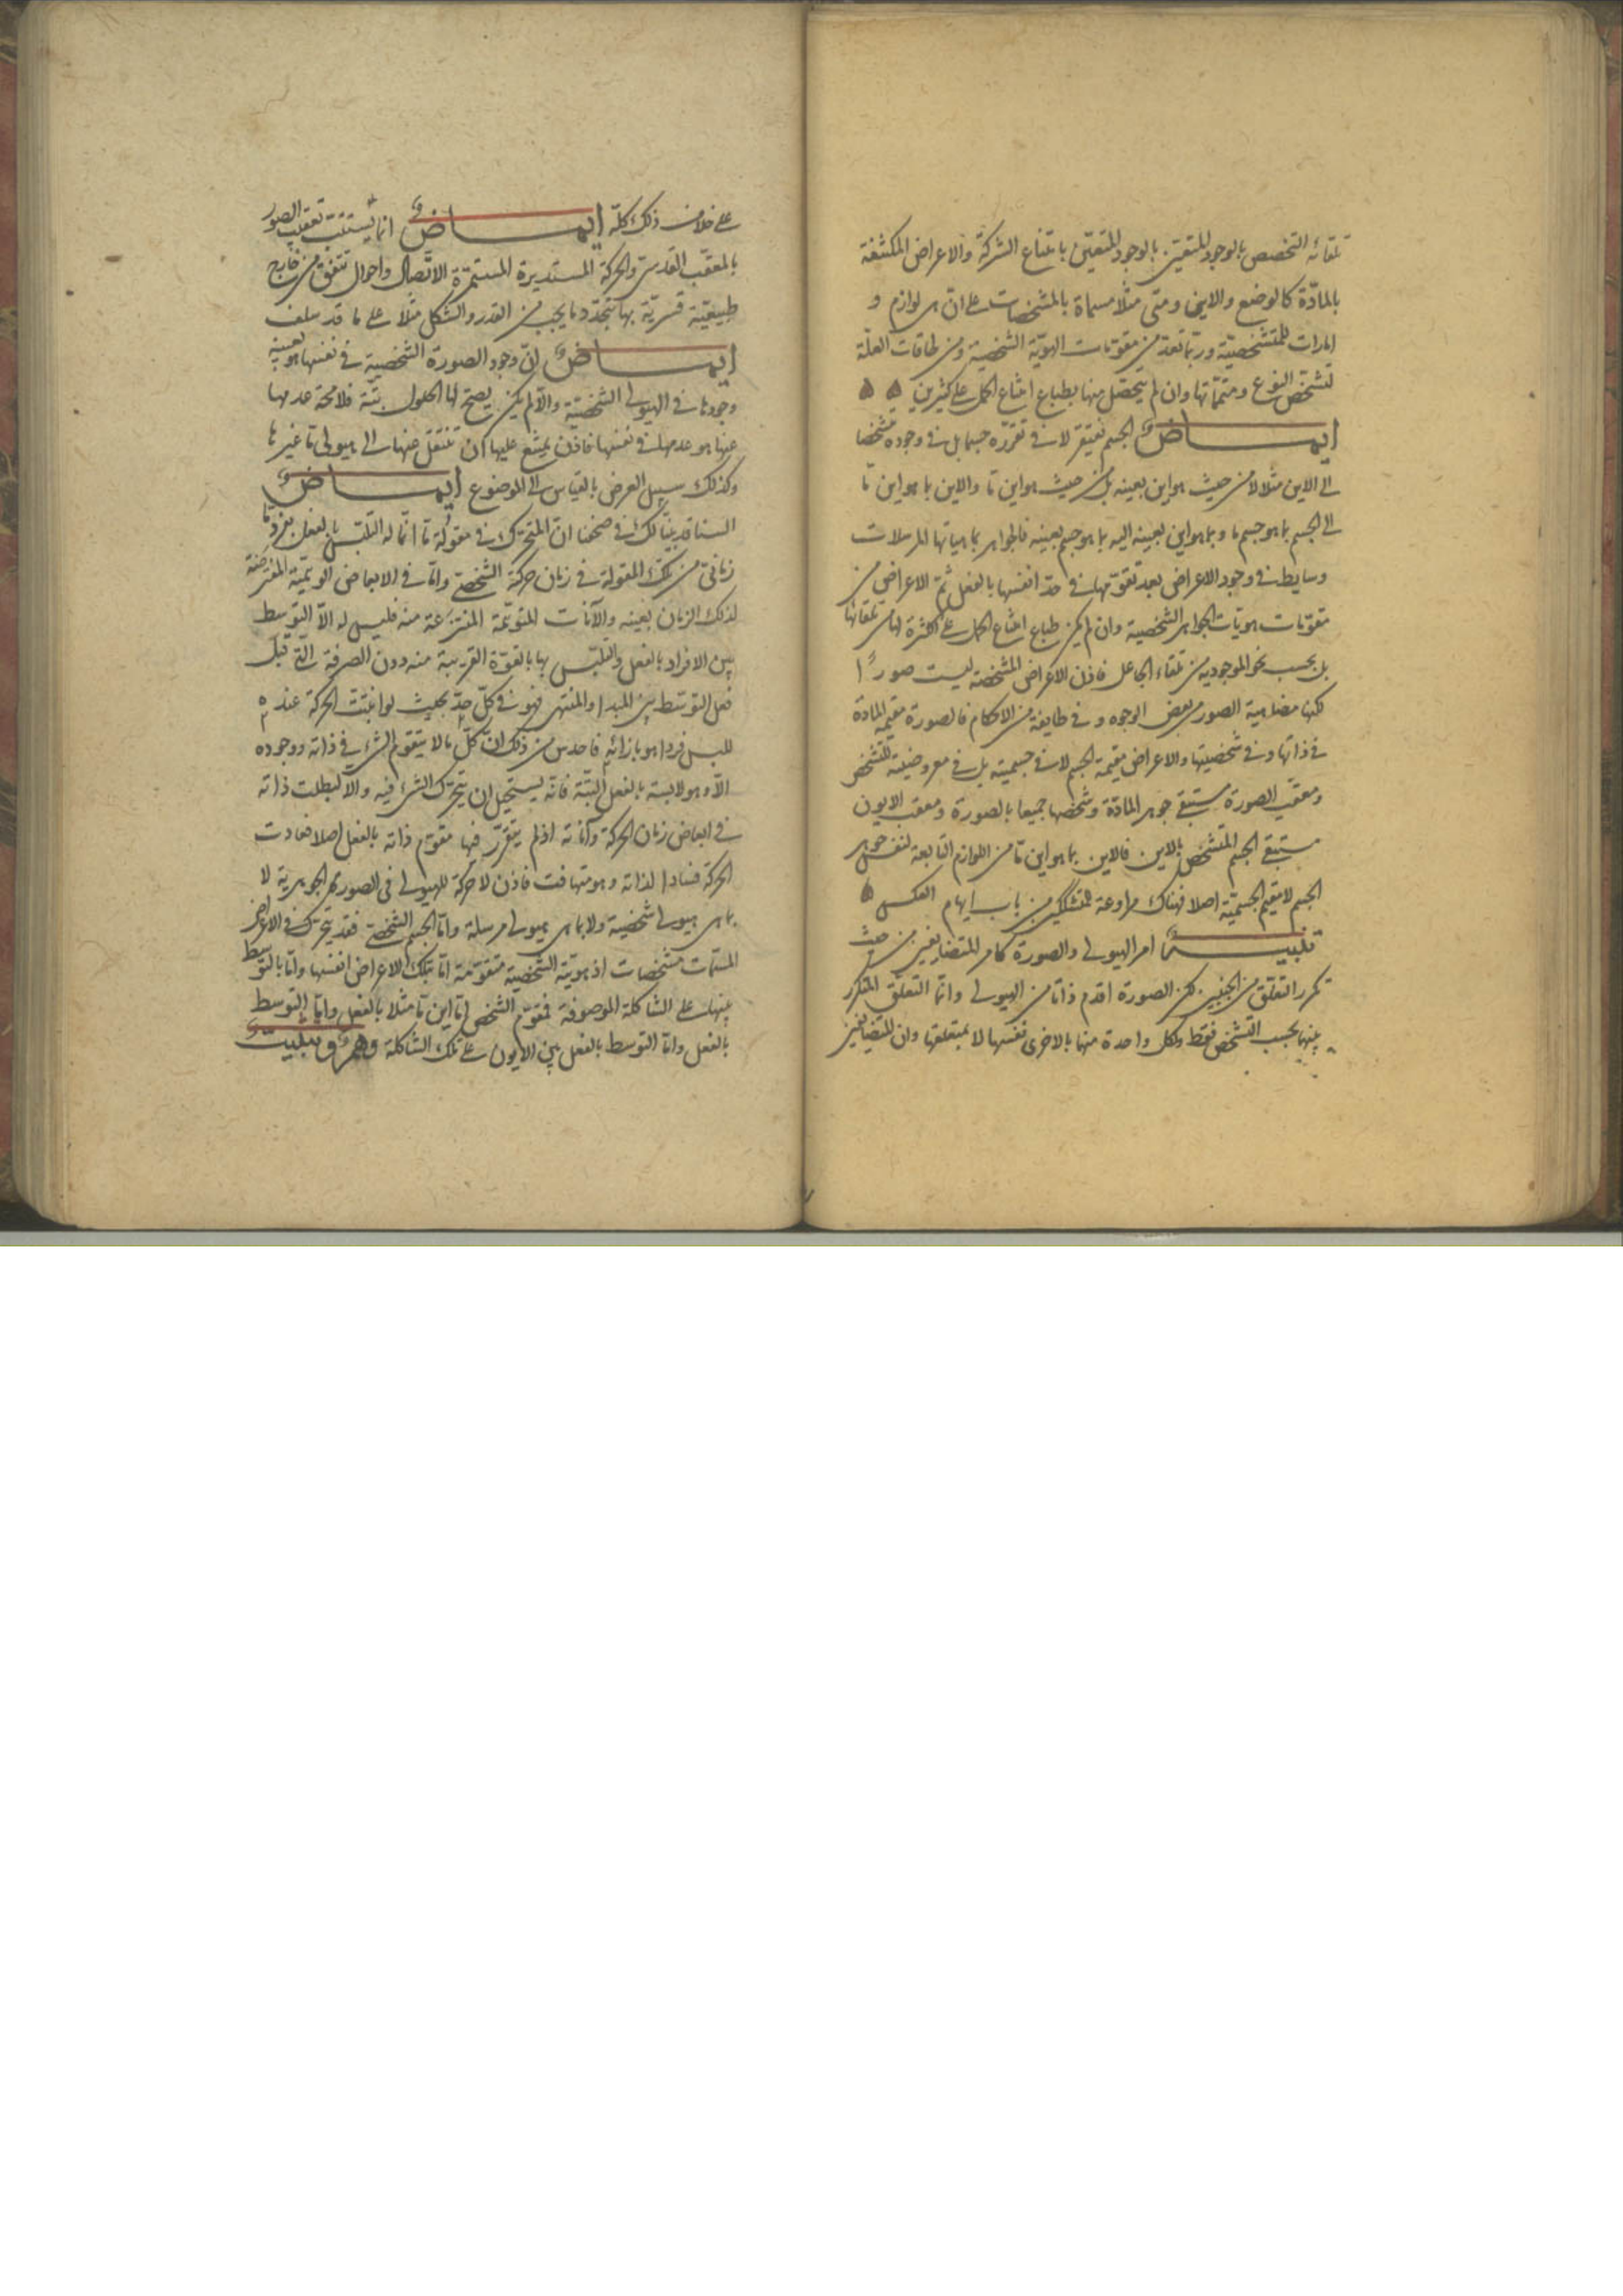 تلقائه التخصص بالوجود للمتعين بالوجود المتعين بامتناع الشركة والاعراض المكتنفة
بالمادة كالوضع والاين ومتى مثلا مسماة بالمشخصات على ان هي لوازم و
امارات للمتشخصية وربما تعد من مقومات الهوية الشخصية ومن طاقات العلة
لتشخص النوع ومتمماتها وان لم يتحصل منها بطباع امتناع الحمل على كثيرين
ايماض الجسم يفتقر لا في تقرره جسما بل في وجوده متشخصا
الى الاين مثلا لا من حيث هو اين بعينه بل من حيث هو اين ما والاين بما هو اين ما
الى الجسم بما هو جسم ما وبما هو اين بعينه اليه بما هو جسم بعينه فالجواهر بماهياتها المرسلات
وسايط في وجود الاعراض بعد تقومها في حد انفسها بالفعل ثم الاعراض من
مقومات هويات الجواهر الشخصية وان لم يكن طباع امتناع الحمل على الكثرة لها من تلقائها
بل بحسب نحو الموجودية من تلقاء الجاعل فاذن الاعراض المشخصة ليست صورا
لكنها مضاهية الصور من بعض الوجوه وفي طايفة من الاحكام فالصورة مقيمة المادة
في ذاتها وفي شخصيتها والاعراض مقيمة الجسم لا في جسميته بل في معروضيته للتشخص
ومعقب الصورة يستبقي جوهر المادة وشخصها جميعا بالصورة ومعقب الايون
يستبقي الجسم المتشخص بالاين فالاين بما هو اين ما من اللوازم التابعة لنفس جوهر
الجسم لا مقيم الجسمية اصلا فهناك مراوغة للمتشككين من باب ايهام العكس
تنبيه امر الهيولى والصورة كامر المتضايفين من حيث
تكرر التعلق من الجنبين لكن الصورة اقدم ذاتا من الهيولى وانما التعلق المتكرر
بينهما بحسب التشخص فقط ولكل واحدة منهما بالاخرى نفسها لا بمتعلقها وان المتضايفين
على خلاف ذلك كله ايماض انما يستتب تعقب الصور
بالمعقب القدسي والحركة المستديرة المستمرة الاتصال واحوال تتفق من خارج
طبيعية قسرية بها يتجدد ما يجب من القدر والشكل مثلا على ما قد سلف
ايماض ان وجود الصورة الشخصية في نفسها هو بعينه
وجودها في الهيولى الشخصية والا لم يكن يصح لها الحلول بتة فلا محة عدمها
عنها هو عدمها في نفسها فاذن يمتنع عليها ان تنتقل عنها الى هيولى ما غيرها
وكذلك سبيل العرض بالقياس الى الموضوع ايماض
السنا قد بينا لك في صحفنا ان المتحرك في مقولة ما انما له التلبس بالفعل بفرد ما
زماني من تلك المقولة في زمان حركة الشخصي واما في الابعاض الوهمية المفترضة
لذلك الزمان بعينه والآنات المتوهمة المنتزعة منه فليس له الا التوسط
بين الافراد بالفعل والتلبس بها بالقوة القريبة منه دون الصرفة التي قبل
فعل التوسط بين المبدا والمنتهى فهو في كل حد بحيث لو انبتت الحركة عنده
تلبس فردا هو بازائه فاحدس من ذلك ان كل ما لا يتقوم الشيء في ذاته ووجوده
الا وهو لابسه بالفعل البتة فانه يستحيل ان يتحرك الشيء فيه والا لبطلت ذاته
في ابعاض زمان الحركة وآناته اذ لم يتقرر فيها مقوم ذاته بالفعل اصلا فعادت
الحركة فسادا لذاته وهو متهافت فاذن لا حركة للهيولى في الصور الجوهرية لا
بما هي هيولى شخصية ولا بما هي هيولى مرسلة واما الجسم الشخصي فقد يتحرك في الاعراض
المسمات مشخصات اذ هويته الشخصية متقومة اما بتلك الاعراض انفسها واما بالتوسط
بينها على الشاكلة الموصوفة فمقوم الشخص اما اين ما مثلا بالفعل واما التوسط
بالفعل واما التوسط بالفعل بين الايون على تلك الشاكلة وهم وتثبيت